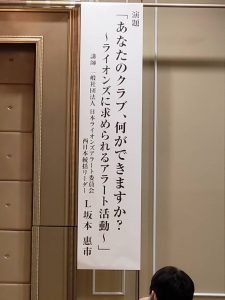 演題
「あなたのクラブ、何ができますか?
~ライオンズに求められるアラート活動~」
講師 一般社団法人 日本ライオンズアラート委員会
西日本統括リーダー
L 坂本 惠市